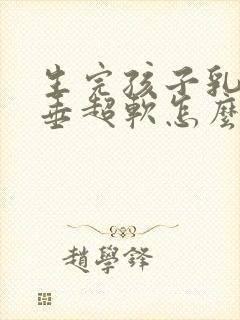 生完孩子乳
垂超軟怎麼
趙學鋒